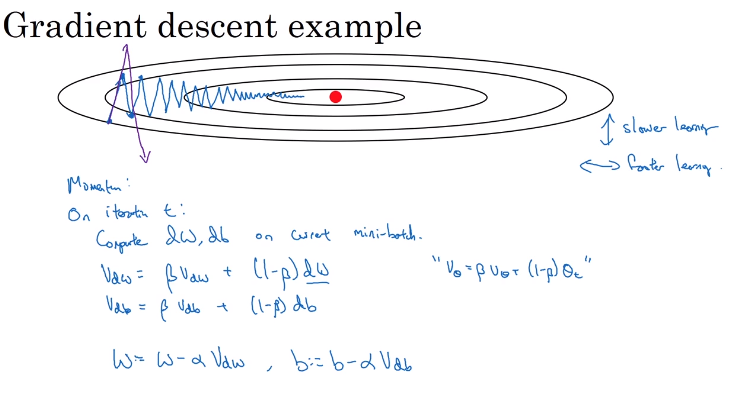 Gradient descent example
↕ slower learning
↔ faster learning.
Momentum:
On iteration t:
Compute dW, db on current mini-batch.
V_dw = βV_dw + (1-β)dW
"V_θ = βV_θ + (1-β)θ_t"
V_db = βV_db + (1-β)db
W := W - αV_dw , b := b - αV_db